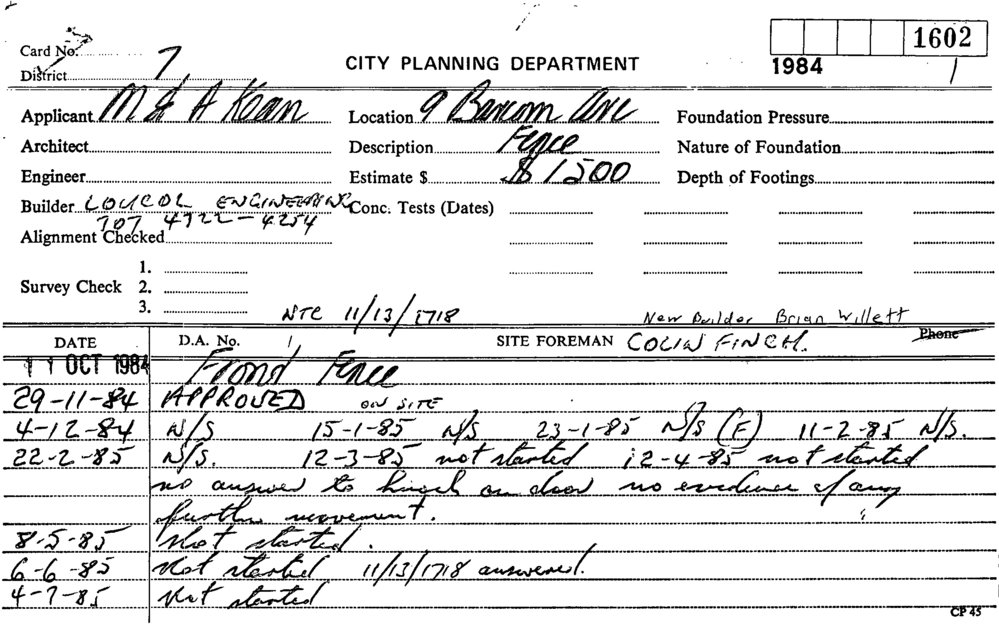 Card No. 1602
District 7 CITY PLANNING DEPARTMENT 1984 1
Applicant M & A Kean Location 9 Barcom Ave Foundation Pressure
Architect Description Fence Nature of Foundation
Engineer Estimate $ $1500 Depth of Footings
Builder LOUCOL ENGINEERING Conc. Tests (Dates)
707 4722-4254
Alignment Checked
1.
Survey Check 2.
3.
NTC 11/13/1718 New Builder Brian Willett
DATE D.A. No. SITE FOREMAN COLIN FINCH. Phone
11 OCT 1984 Front Fence
29-11-84 APPROVED ON SITE
4-12-84 N/S 15-1-85 N/S 23-1-85 N/S (F) 11-2-85 N/S.
22-2-85 N/S. 12-3-85 not started 12-4-85 not started
no answer to knock on door no evidence of any
further movement.
8-5-85 Not started.
6-6-85 Not started 11/13/1718 answered.
4-7-85 Not started
CP 45